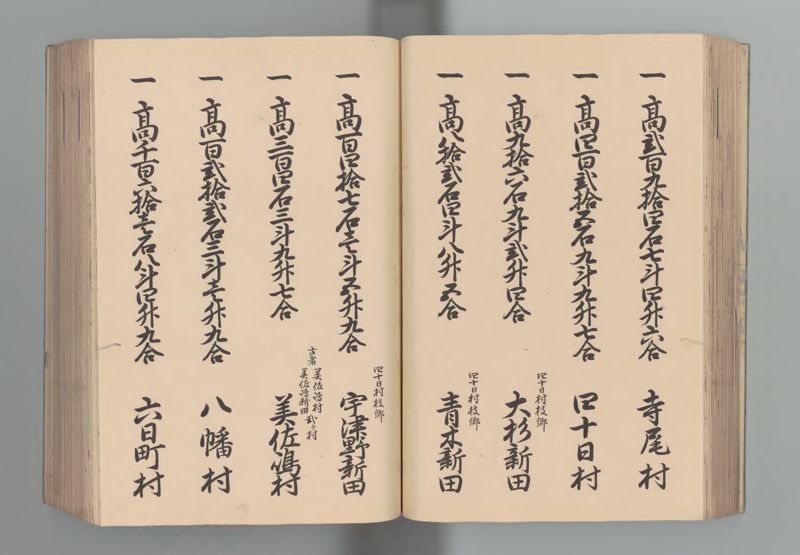 一 高弐百九拾四石七斗四升六合 寺尾村
一 高四百弐拾五石九斗九升七合 四十日村
四十日村枝郷
一 高九拾六石九斗弐升四合 大杉新田
四十日村枝郷
一 高八拾弐石四斗八升五合 青木新田
四十日村枝郷
一 高百四拾七石壱斗五升九合 宇津野新田
古者 美佐嶋村 美佐嶋新田 弐ケ村
一 高三百四石三斗九升七合 美佐嶋村
一 高百弐拾弐石三斗壱升九合 八幡村
一 高千百六拾壱石八斗四升九合 六日町村